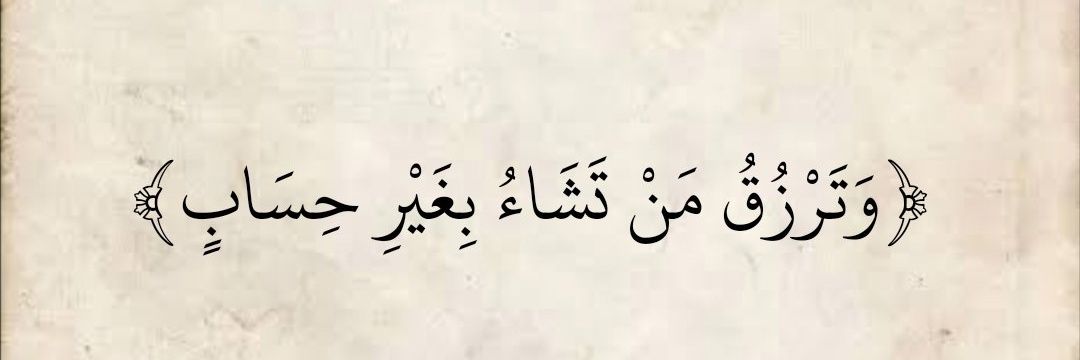 ﴿وَتَرْزُقُ مَنْ تَشَاءُ بِغَيْرِ حِسَابٍ﴾